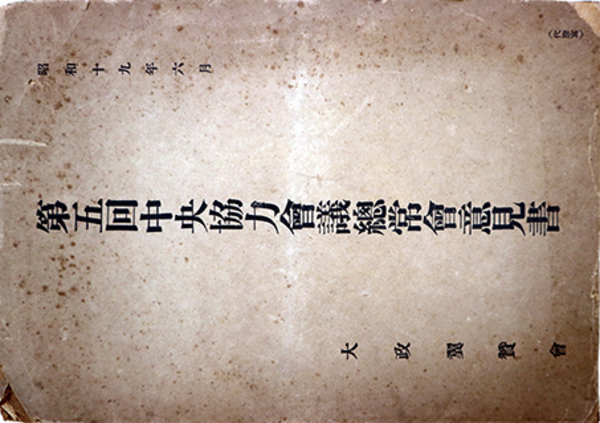 (代謄寫)
昭和十九年六月
第五回中央協力會議總常會意見書
大政翼贊會